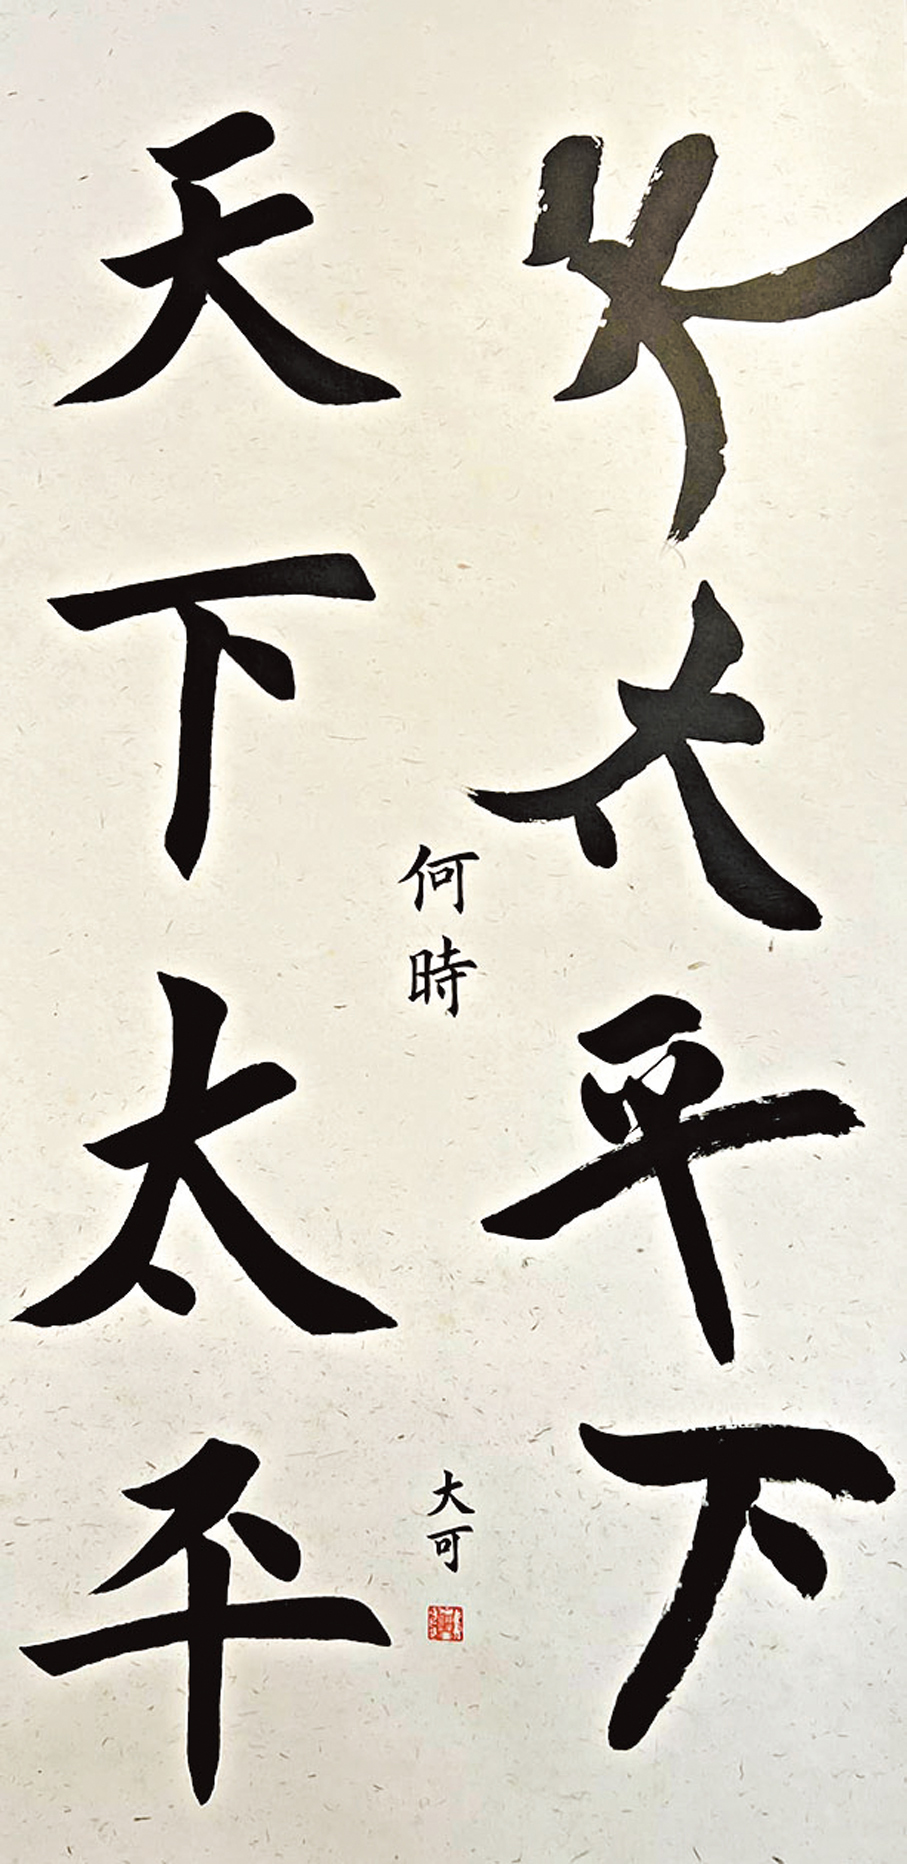 天太平下
何時
天下太平
大可